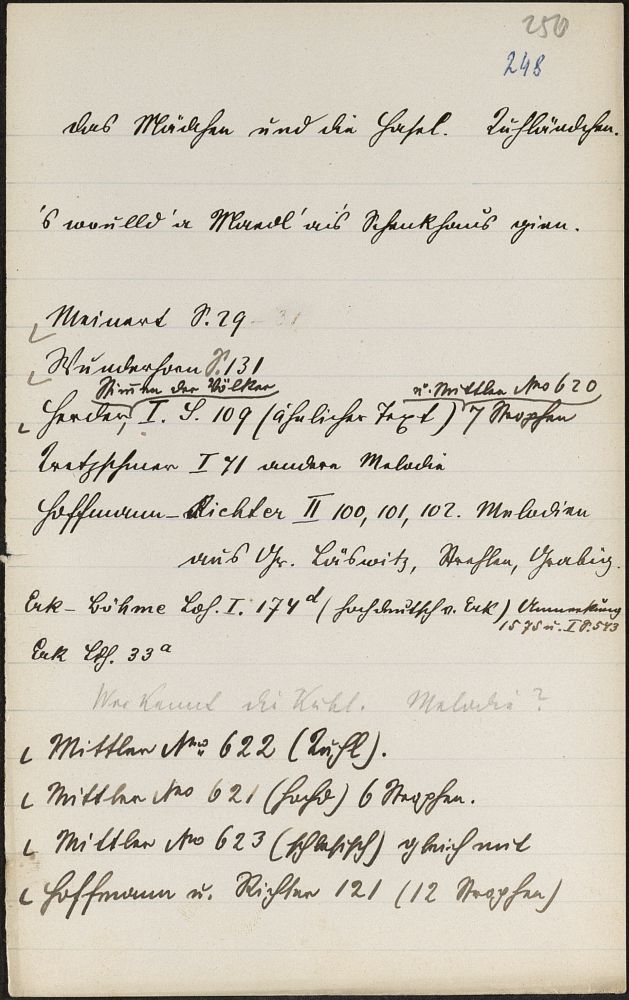 250
248
Das Mädchen und die Hasel. Kuhländchen.
's woulld' a Maedl' ais Schenkhaus gien.
Meinert S. 29 - 31
Wunderhorn S. 131
Stimmen der Völker u. Mittler No 620
Herder, I. S. 109 (ähnlicher Text) 7 Strophen
Kretzschmer I 71 andere Melodie
Hoffmann-Richter II 100, 101, 102. Melodien
aus Gr. Läswitz, Strehlen, Grabig.
Erk-Böhme Ldh. I. 174 d (hochdeutsch v. Erk) Anmerkung
1575 u. I S. 543
Erk Ldh. 33 a
Wer kennt die Kuhl. Melodie?
Mittler No 622 (Kuhl).
Mittler No 621 (hochd) 6 Strophen.
Mittler No 623 (schlesisch) gleich mit
Hoffmann u. Richter 121 (12 Strophen)